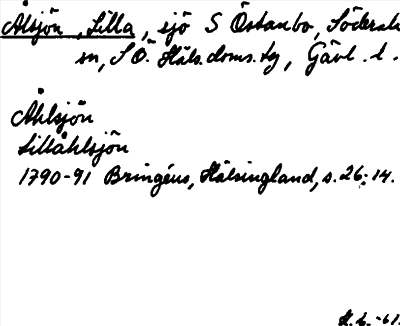 Ålsjön, Lilla, sjö S Östanbo, Söderala
sn, S Ö. Häls.doms.tg, Gävl. l.
Åhlsjön
Lillåhlsjön
1790-91 Bringéus, Hälsingland, s. 26; 14.